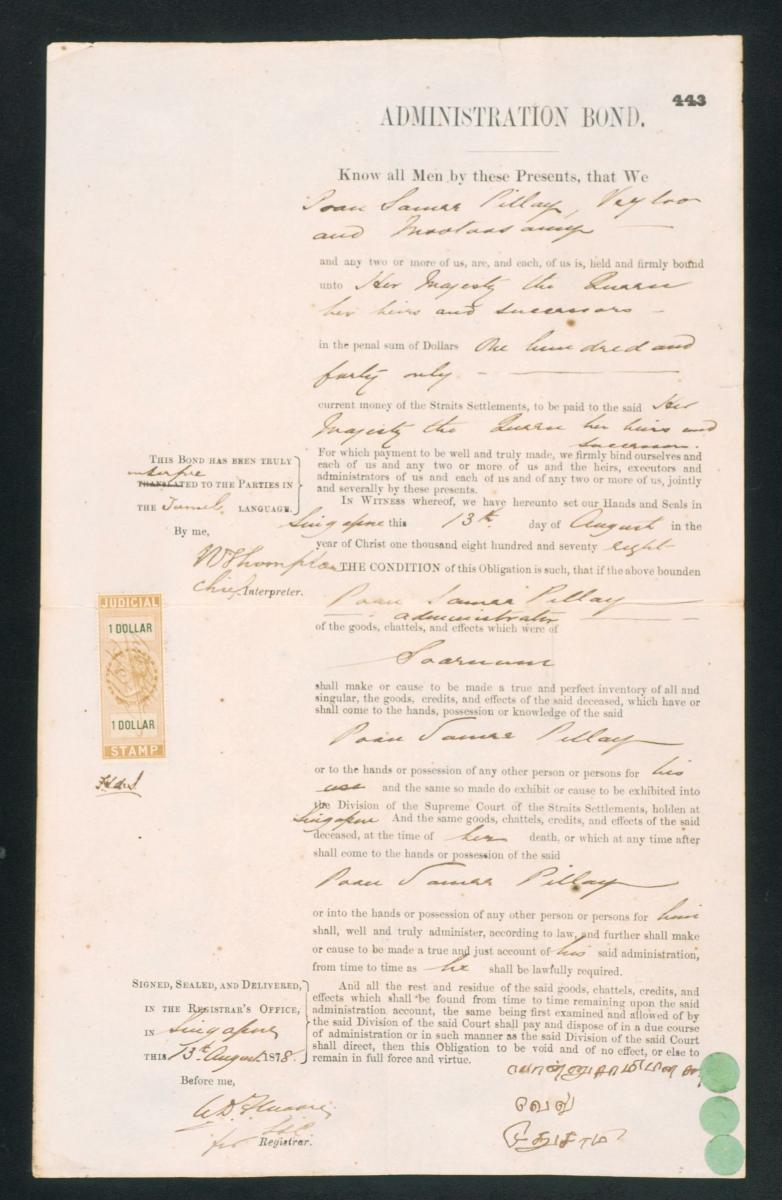 443
ADMINISTRATION BOND.
Know all Men by these Presents, that We
Poan Samee Pillay, Vayloo
and Mootoosamy
and any two or more of us, are, and each, of us is, held and firmly bound
unto Her Majesty the Queen
her heirs and successors
in the penal sum of Dollars One hundred and
forty only
current money of the Straits Settlements, to be paid to the said Her
Majesty the Queen her heirs and
successors.
For which payment to be well and truly made, we firmly bind ourselves and
each of us and any two or more of us and the heirs, executors and
administrators of us and each of us and of any two or more of us, jointly
and severally by these presents.
THIS BOND HAS BEEN TRULY
TRANSLATED TO THE PARTIES IN
THE Tamil LANGUAGE.
By me,
Chief Interpreter.
IN WITNESS whereof, we have hereunto set our Hands and Seals in
Singapore this 13th day of August in the
year of Christ one thousand eight hundred and seventy eight
THE CONDITION of this Obligation is such, that if the above bounden
Poan Samee Pillay
administrator
of the goods, chattels, and effects which were of
shall make or cause to be made a true and perfect inventory of all and
singular, the goods, credits, and effects of the said deceased, which have or
shall come to the hands, possession or knowledge of the said
Poan Samee Pillay
JUDICIAL
1 DOLLAR
1 DOLLAR
STAMP
or to the hands or possession of any other person or persons for his
use and the same so made do exhibit or cause to be exhibited into
the Division of the Supreme Court of the Straits Settlements, holden at
Singapore And the same goods, chattels, credits, and effects of the said
deceased, at the time of her death, or which at any time after
shall come to the hands or possession of the said
Poan Samee Pillay
or into the hands or possession of any other person or persons for him
shall, well and truly administer, according to law, and further shall make
or cause to be made a true and just account of his said administration,
from time to time as he shall be lawfully required.
And all the rest and residue of the said goods, chattels, credits, and
effects which shall be found from time to time remaining upon the said
administration account, the same being first examined and allowed of by
the said Division of the said Court shall pay and dispose of in a due course
of administration or in such manner as the said Division of the said Court
shall direct, then this Obligation to be void and of no effect, or else to
remain in full force and virtue.
SIGNED, SEALED, AND DELIVERED,
IN THE REGISTRAR'S OFFICE,
IN Singapore
THIS 13th August 1878.
Before me,
Registrar.
வேலு